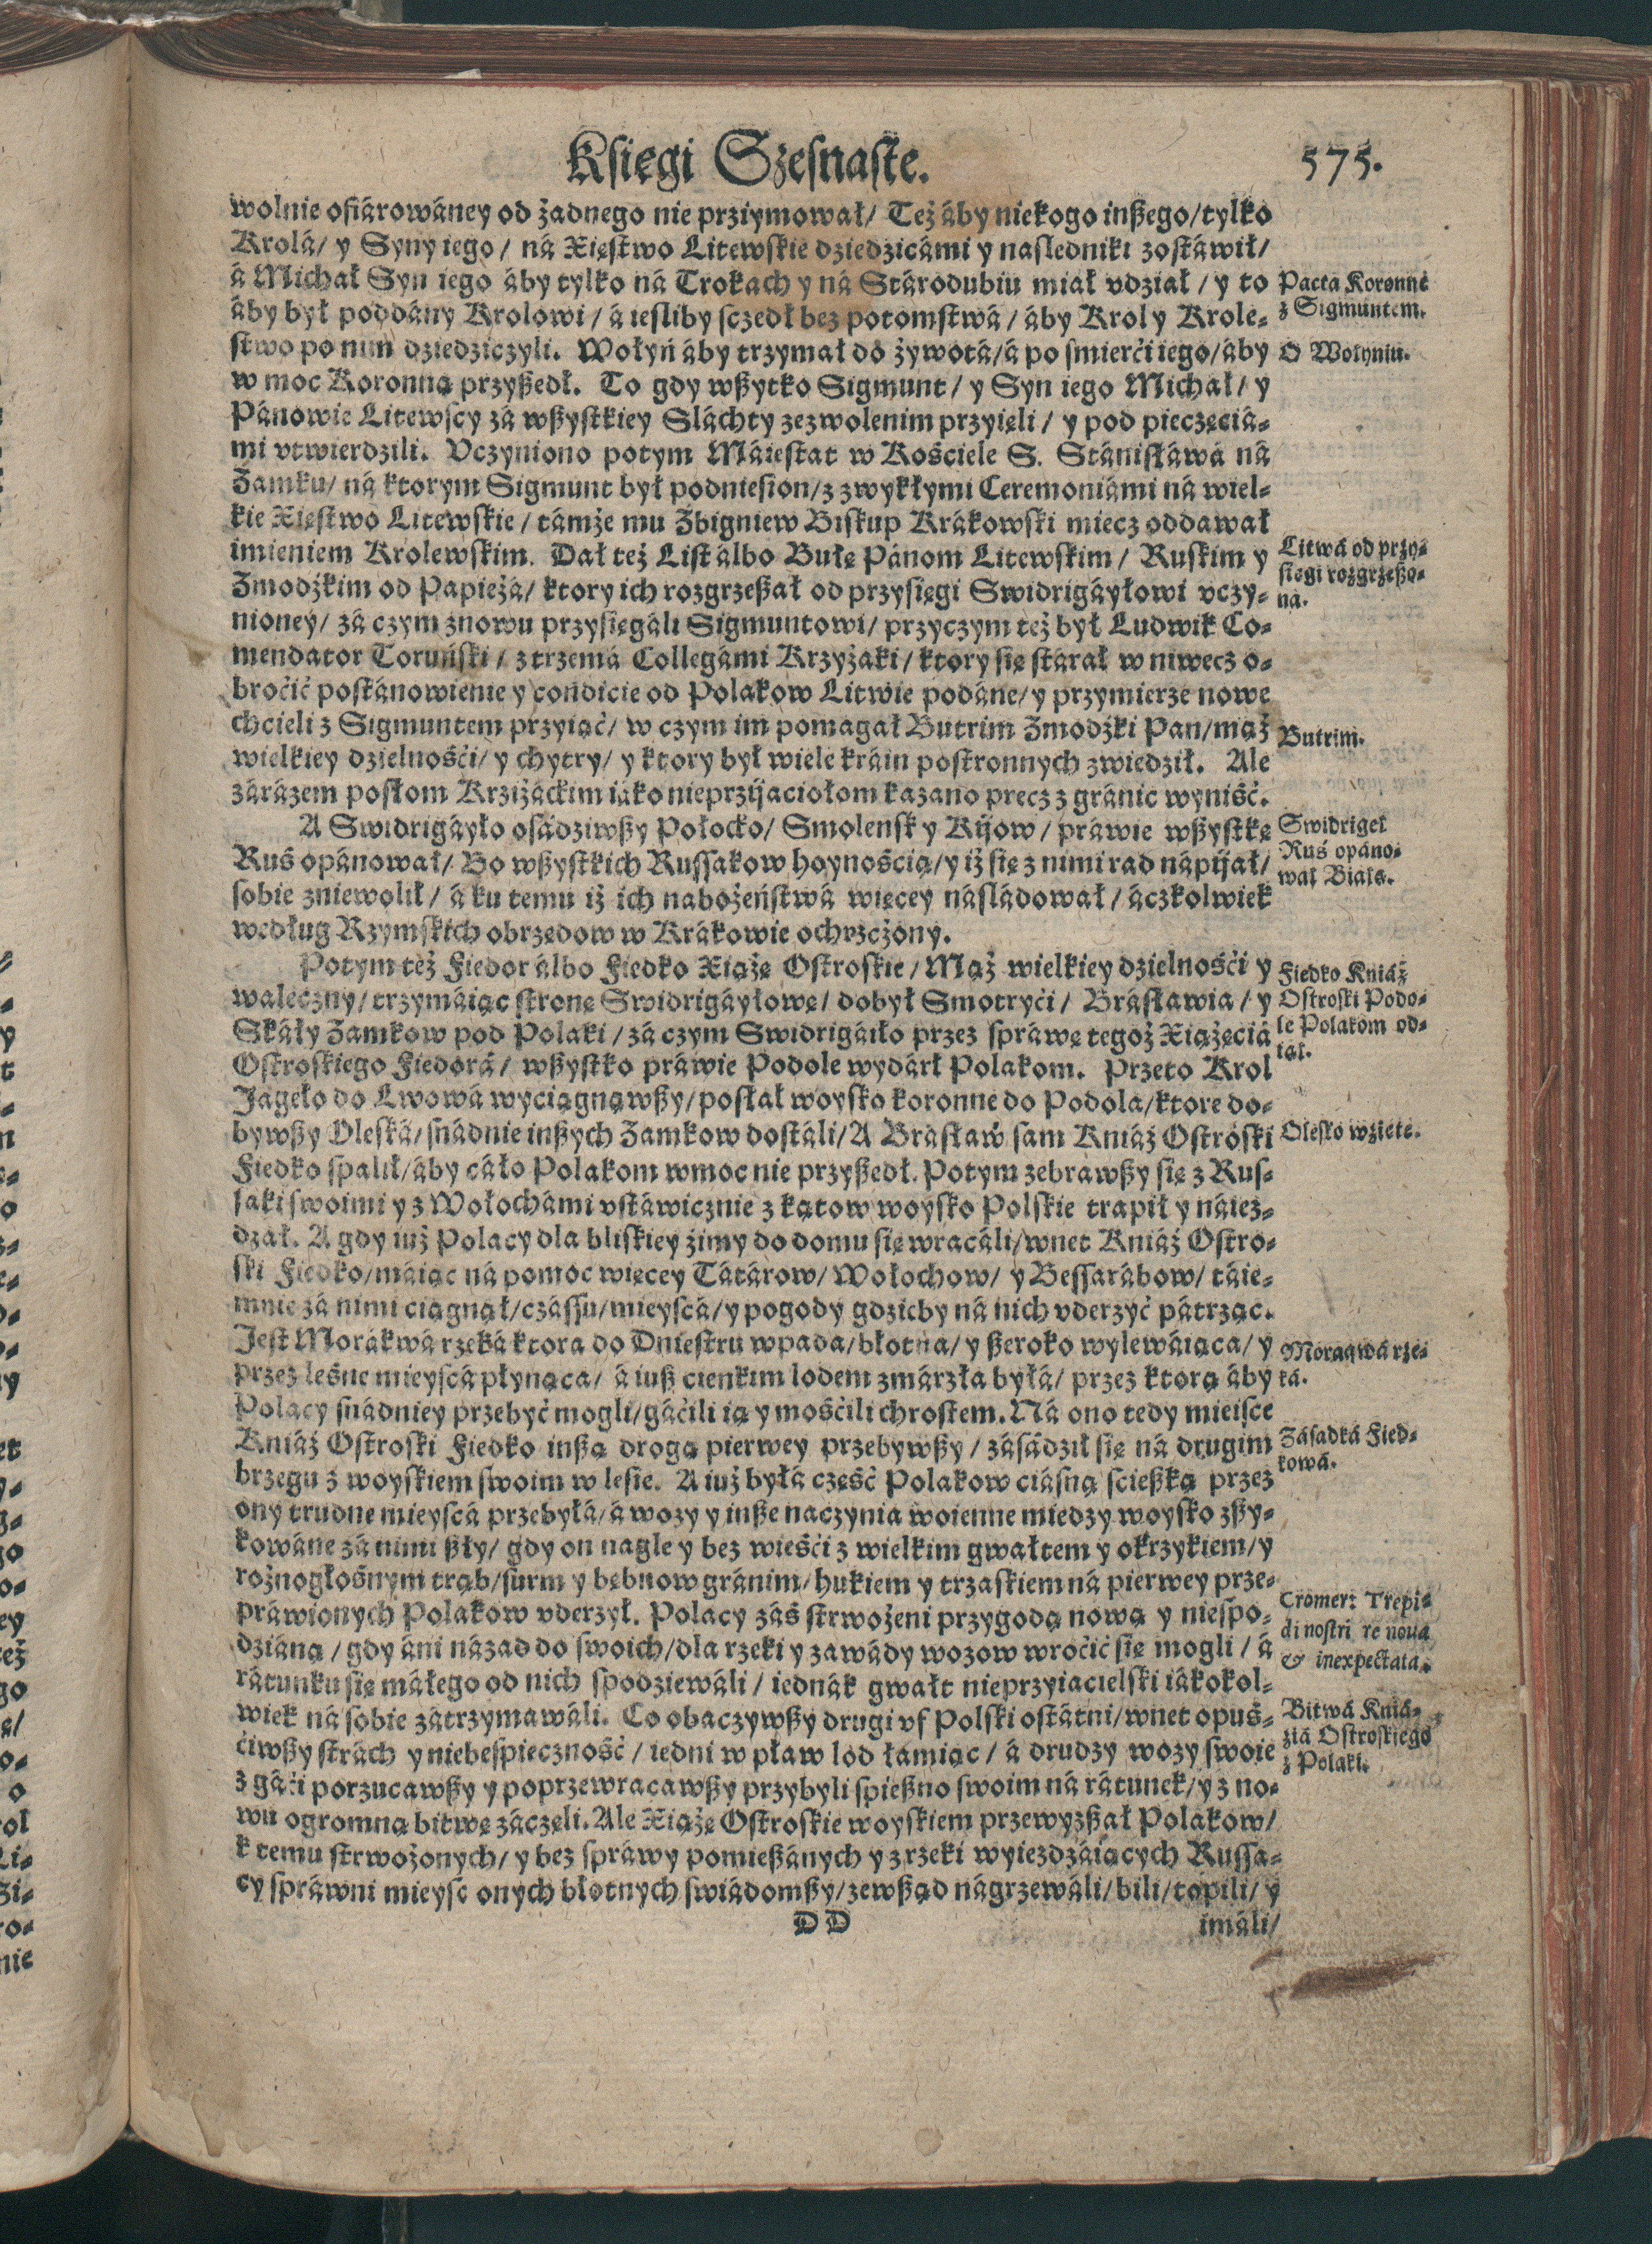 Księgi Szesnaste.
575.
wolnie ofiárowáney od żadnego nie prziymował/ Też áby niekogo inßego/tylko
Krolá/ y Syny iego/ ná Xięstwo Litewskie dziedzicámi y nasledniki zostáwił/
á Michał Syn iego áby tylko ná Trokach y ná Stárodubiu miał vdział/ y to
áby był poddány Krolowi/ á iesliby sczedł bez potomstwá/ áby Krol y Krole-
stwo po nim dziedziczyli. Wołyń áby trzymał do żywotá/á po smierći iego/áby
w moc Koronną przyßedł. To gdy wßytko Sigmunt/ y Syn iego Michał/ y
Pánowie Litewscy zá wßystkiey Sláchty zezwolenim przyięli/ y pod pieczęciá-
mi vtwierdzili. Vczyniono potym Máiestat w Kośćiele S. Stánisłáwá ná
Zamku/ ná ktorym Sigmunt był podniesion/z zwykłymi Ceremoniámi ná wiel-
kie Xięstwo Litewskie/ támże mu Zbigniew Biskup Krákowski miecz oddawał
imieniem Krolewskim. Dał też List álbo Bułę Pánom Litewskim/ Ruskim y
Zmodźkim od Papieżá/ ktory ich rozgrzeßał od przysięgi Swidrigáyłowi vczy-
nioney/ zá czym znowu przysięgáli Sigmuntowi/ przyczym też był Ludwik Co-
mendator Toruński/ z trzemá Collegámi Krzyżaki/ ktory się stárał w niwecz o-
broćić postánowienie y condicie od Polakow Litwie podáne/ y przymierze nowe
chcieli z Sigmuntem przyiąć/ w czym im pomagał Butrim Zmodźki Pan/mąż
wielkiey dzielnośći/ y chytry/ y ktory był wiele kráin postronnych zwiedził. Ale
zárázem posłom Krziżáckim iáko nieprzijaciołom kazano precz z gránic wyniść.
A Swidrigáyło osádziwßy Połocko/ Smolensk y Kijow/ práwie wßystkę
Ruś opánował/ Bo wßystkich Russakow hoynością/y iż się z nimi rad nápijał/
sobie zniewolił/ á ku temu iż ich nabożeństwá więcey násládował/ áczkolwiek
według Rzymskich obrzędow w Krákowie ochrzczony.
Potym też Fiedor álbo Fiedko Xiążę Ostroskie/ Mąż wielkiey dzielnośći y
waleczny/ trzymáiąc stronę Swidrigáyłowę/ dobył Smotryći/ Brásławia/ y
Skáły Zamkow pod Polaki/ zá czym Swidrigáiło przez spráwę tegoż Xiążęciá
Ostroskiego Fiedorá/ wßystko práwie Podole wydárł Polakom. Przeto Krol
Jageło do Lwowá wyciągnąwßy/ posłał woysko koronne do Podola/ktore do-
bywßy Oleská/ snádnie inßych Zamkow dostáli/ A Brásław sam Kniáź Ostroski
Fiedko spalił/áby cáło Polakom w moc nie przyßedł. Potym zebrawßy się z Rus-
saki swoimi y z Wołochámi vstáwicznie z kątow woysko Polskie trapił y náież-
dżał. A gdy iuż Polacy dla bliskiey źimy do domu się wracáli/wnet Kniáź Ostro-
ski Fiedko/máiąc ná pomoc więcey Tátárow/ Wołochow/ y Bessarábow/ táie-
mnie zá nimi ciągnął/czássu/mieyscá/y pogody gdzieby ná nich vderzyć pátrząc.
Jest Morákwá rzeká ktora do Dniestru wpada/błotna/ y ßeroko wylewáiąca/ y
przez leśne mieyscá płynąca/ á iuß cienkim lodem zmárzła byłá/ przez ktorą áby
Polacy snádniey przebyć mogli/gáćili ią y mośćili chrostem. Ná ono tedy mieisce
Kniáź Ostroski Fiedko inßą drogą pierwey przebywßy/ zásádził się ná drugim
brzegu z woyskiem swoim w lesie. A iuż byłá część Polakow ciásną scießką przez
ony trudne mieyscá przebyłá/á wozy y inße naczynia woienne miedzy woysko zßy-
kowáne zá nimi ßły/ gdy on nagle y bez wieśći z wielkim gwałtem y okrzykiem/y
rożnogłośnym trąb/surm y bębnow gránim/hukiem y trzaskiem ná pierwey prze-
práwionych Polakow vderzył. Polacy záś strwożeni przygodą nową y niespo-
dzianą/ gdy áni názad do swoich/dla rzeki y zawády wozow wroćić się mogli/ á
rátunku się máłego od nich spodziewáli/ iednák gwałt nieprzyiacielski iákokol-
wiek ná sobie zátrzymawáli. Co obaczywßy drugi vf Polski ostátni/wnet opuś-
ćiwßy strách y niebespieczność/ iedni w pław lod łamiąc/ á drudzy wozy swoie
z gáći porzucawßy y poprzewracawßy przybyli spießno swoim ná rátunek/y z no-
wu ogromną bitwę záczęli. Ale Xiążę Ostroskie woyskiem przewyzßał Polakow/
k temu strwożonych/ y bez spráwy pomießánych y z rzeki wyiezdzáiących Russa-
cy spráwni mieysc onych błotnych swiádomßy/zewßąd nágrzewáli/bili/topili/ y
DD
imáli/
Pacta Koronne
z Sigmuntem.
O Wołyniu.
Litwá od przy-
sięgi rozgrzeßo-
ná.
Butrim.
Swidrigeł
Ruś opáno-
wał Biała.
Fiedko Kniáź
Ostroski Podo-
le Polakom od-
iął.
Olesko wzięte.
Moráqwá rze-
ká.
Zásadká Fied-
kowá.
Cromer: Trepi-
di nostri re noua
& inexpectata.
Bitwá Kniá-
ziá Ostroskiego
z Polaki.